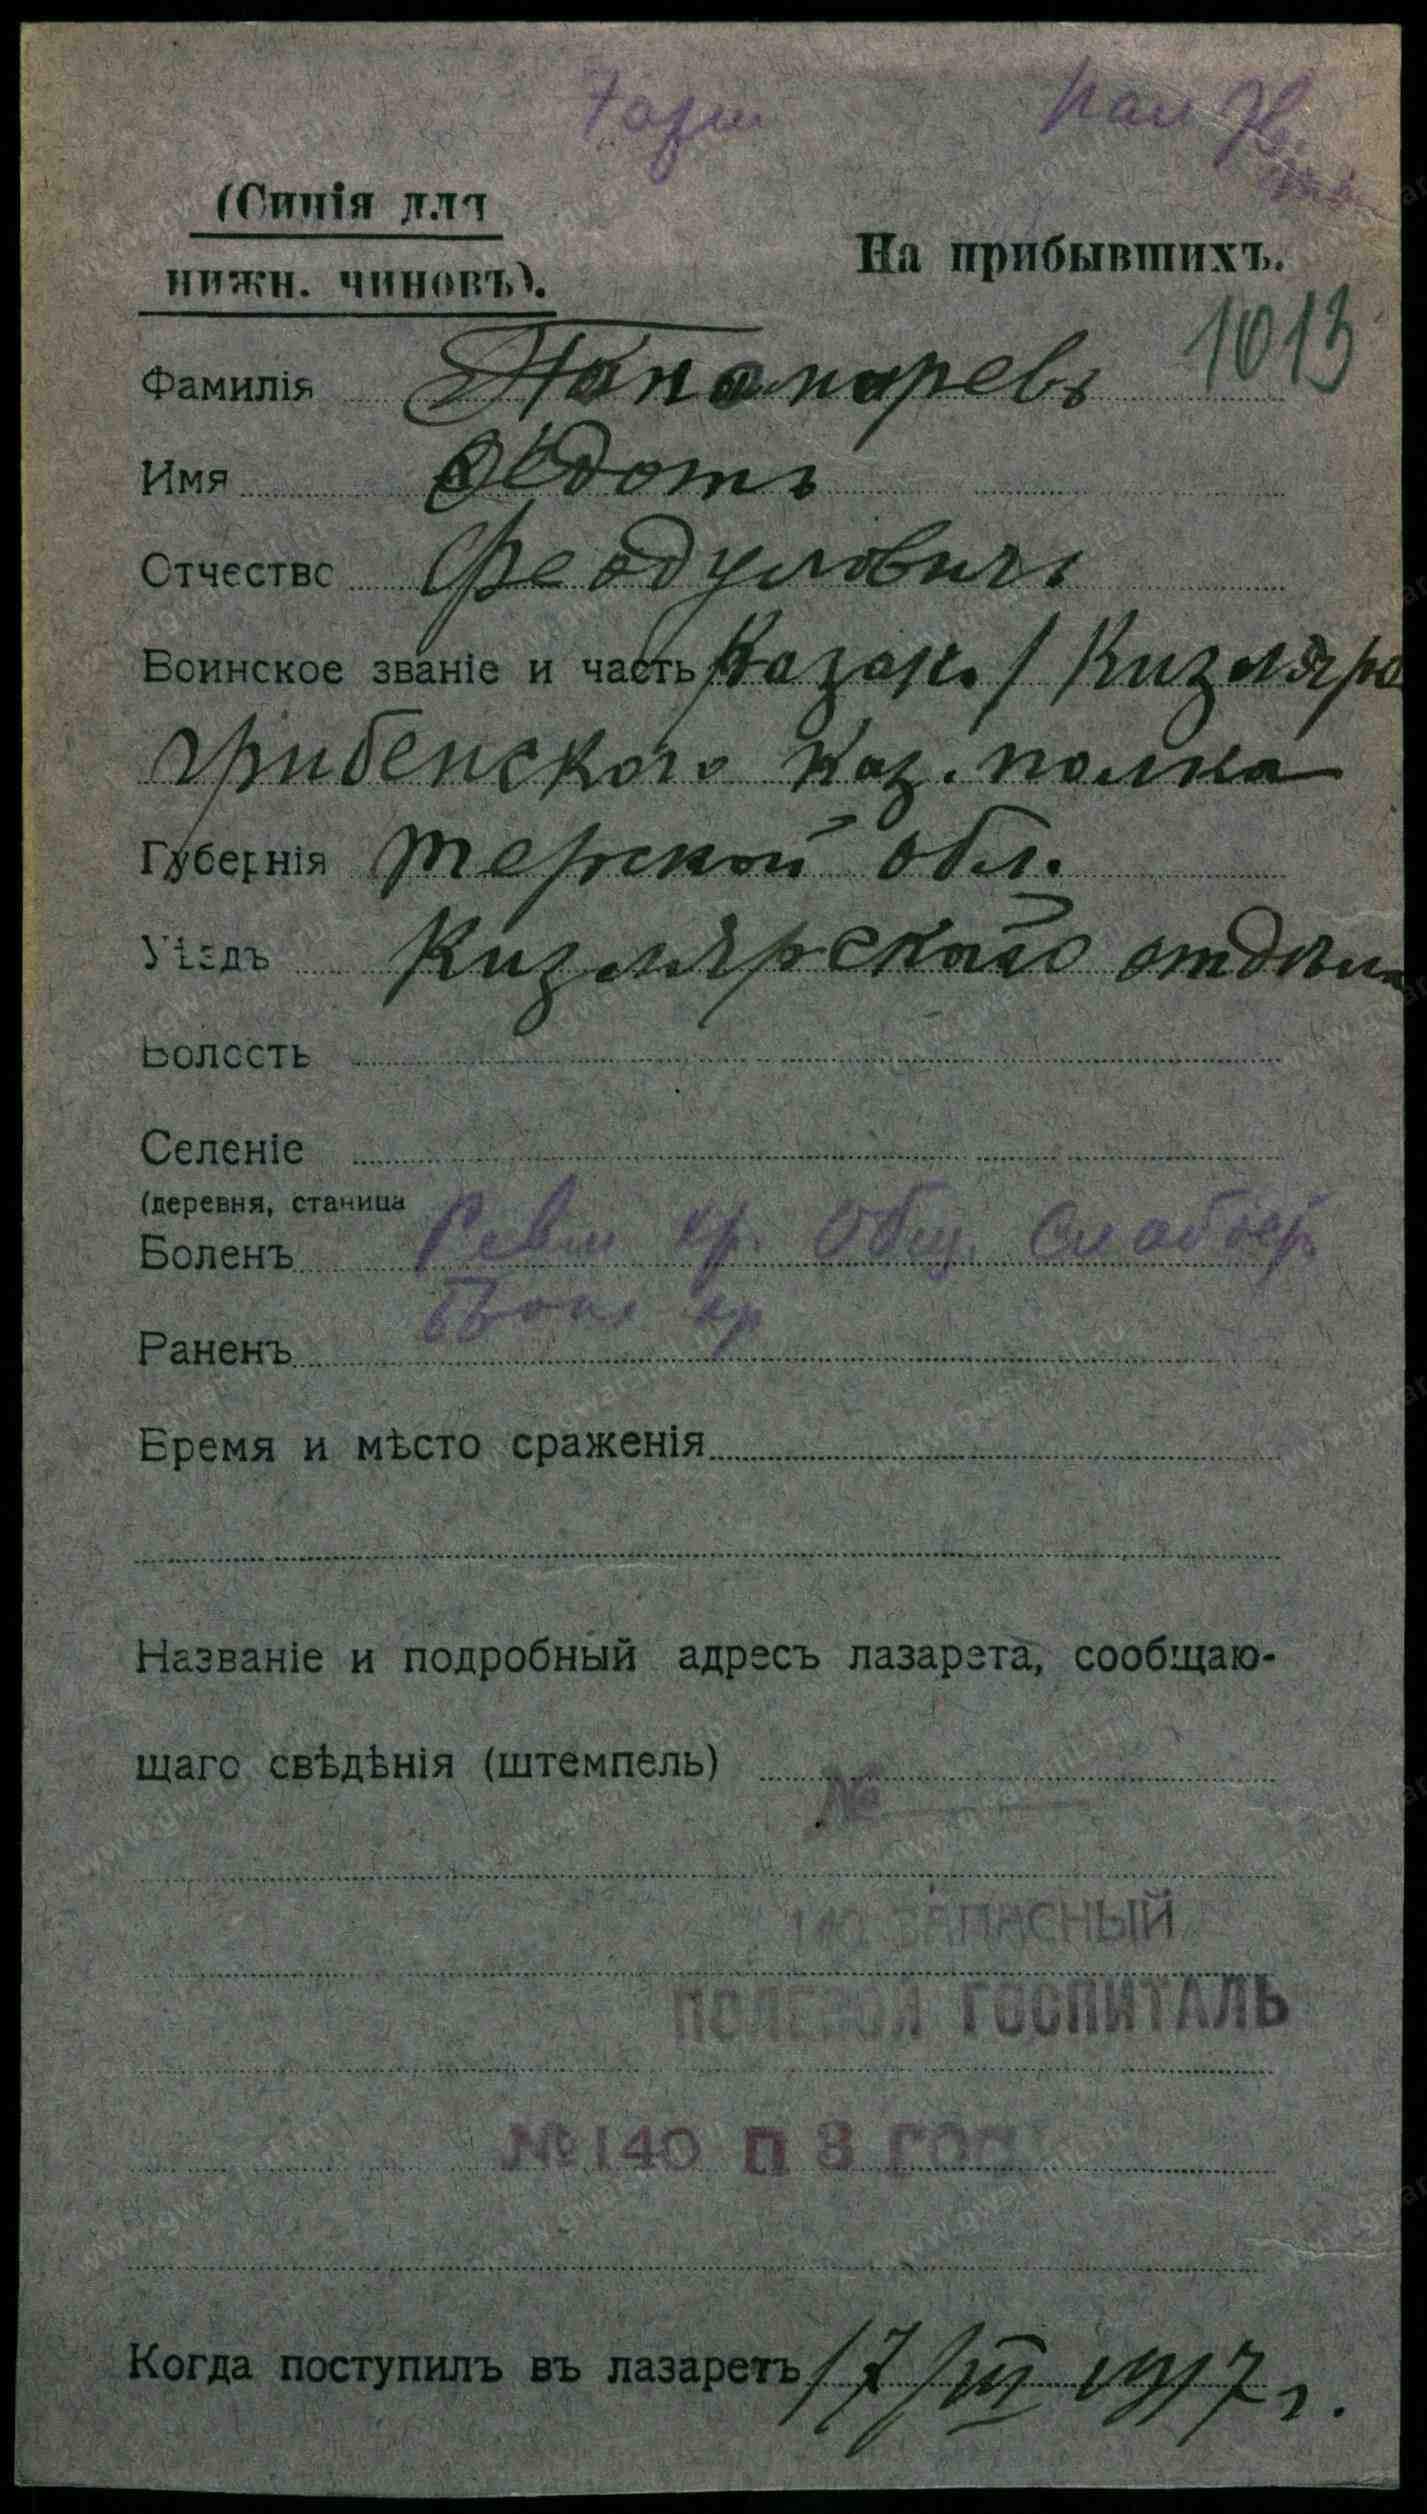 (Синія для
На прибывшихъ.
нижн. чиновъ).
1013
Фамилія Пономаревъ
Имя Ѳедотъ
Отчество Феодуловичъ
Воинское званіе и часть Казак. / Кизляро
гребенского каз. полка
Губернія терской обл.
Уѣздъ Кизлярского отдѣла
Волость
Селеніе
(деревня, станица
Боленъ кр. Общ. Слабост
Раненъ
Время и мѣсто сраженія
Названіе и подробный адресъ лазарета, сообщаю-
щаго свѣдѣнія (штемпель)
№
140 ЗАПАСНЫЙ
ПОЛЕВОЙ ГОСПИТАЛЬ
№ 140 П З ГОС
Когда поступилъ въ лазаретъ 17/III 1917 г.